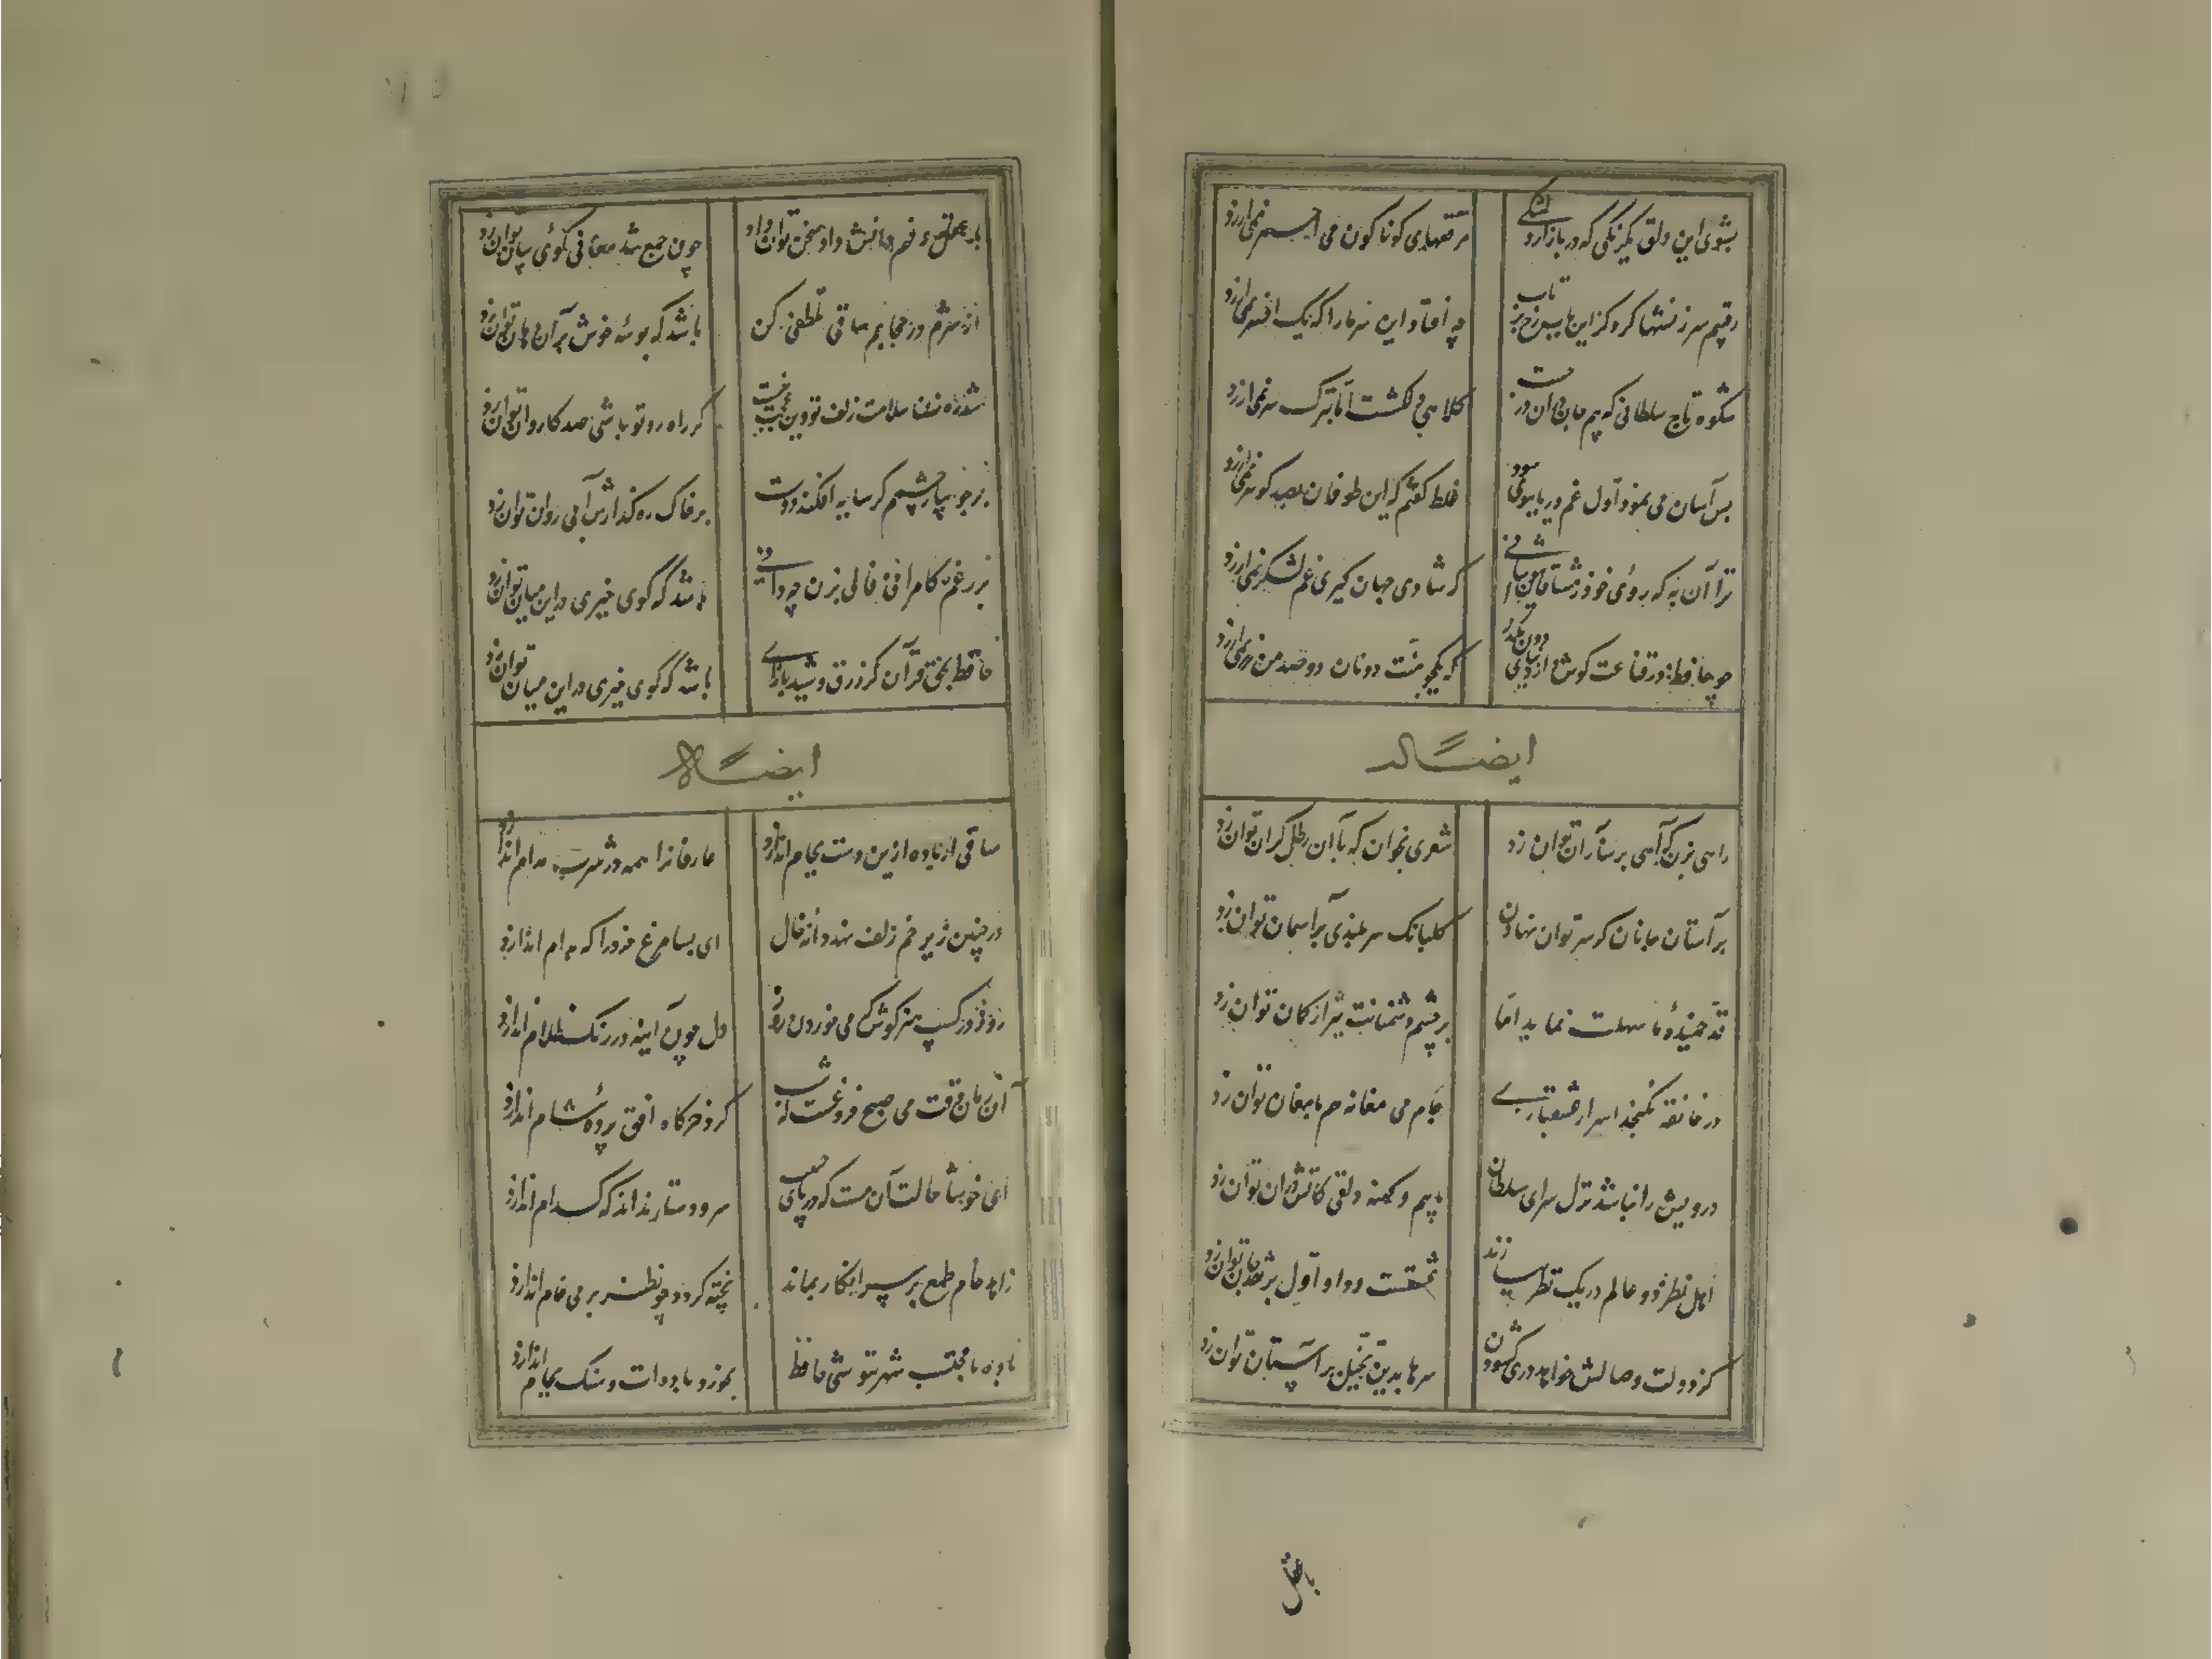 بشوی این دلق یکرنگی که در بازار رنگی
مرقعهای کوناکون می احمر نمی ارزد
رقیبم سرزنشها کرد کز این باب رخ برتاب
چه افتاد این سر مارا که یک افسر نمی ارزد
شکوه تاج سلطانی که بیم جان در آن درجست
کلاهی دلکشست اما بترک سر نمی ارزد
بس آسان می نمود اول غم دریا ببوی سود
غلط کفتم که این طوفان بصد کوهر نمی ارزد
ترا آن به که روی خود ز مشتاقان بپوشانی
که شادی جهان کیری غم لشکر نمی ارزد
چو حافظ در قناعت کوش و از دنیای دون بگذر
که یکجو منت دونان دو صد من زر نمی ارزد
ایضاً له
راهی بزن که آهی بر ساز آن توان زد
شعری بخوان که با آن رطل کران توان زد
بر آستان جانان کر سر توان نهادن
کلبانک سربلندی بر آسمان توان زد
قد خمیدهٔ ما سهلت نماید اما
بر چشم دشمنانت تیر از کمان توان زد
در خانقه نکنجد اسرار عشقبازی
جام می مغانه هم با مغان توان زد
درویش را نباشد نزل سرای سلطان
مائیم و کهنه دلقی کاتش در آن توان زد
اهل نظر دو عالم در یک نظر ببازند
عشقست و داو اول بر نقد جان توان زد
کر دولت وصالش خواهد دری کشودن
سرها بدین تخیل بر آستان توان زد
باعقل
با عقل و فهم دانش داد سخن توان داد
چون جمع شد معانی کوی بیان توان زد
از شرم در حجابیم ساقی تلطفی کن
باشد که بوسه خوش بر آن دهان توان زد
شد رهزن سلامت زلف تو وین عجب نیست
کر راه رو تو باشی صد کاروان توان زد
بر جویبار چشمم کر سایه افکند دوست
بر خاک ره کذارش آبی روان توان زد
بر رغم کامرانی فالی بزن چه دانی
باشد که کوی خیری در این میان توان زد
حافظ بحق قرآن کز زرق و شید بازآی
باشد که کوی خیری در این میان توان زد
ایضاً له
ساقی ار باده ازین دست بجام اندازد
عارفانرا همه در شرب مدام اندازد
در چنین زیر خم زلف نهد دانه خال
ای بسا مرغ خرد را که بدام اندازد
روز در کسب هنر کوش که می خوردن روز
دل چون آینه در زنک ظلام اندازد
آن زمان وقت می صبح فروغست که شب
کرد خرکاه افق پردهٔ شام اندازد
ای خوشا حالت آن مست که در پای حبیب
سر و دستار نداند که کدام اندازد
زاهد خام طمع بر سر انکار بماند
پخته کردد چو نظر بر می خام اندازد
باده با محتسب شهر ننوشی حافظ
بخورد باده ات و سنک بجام اندازد